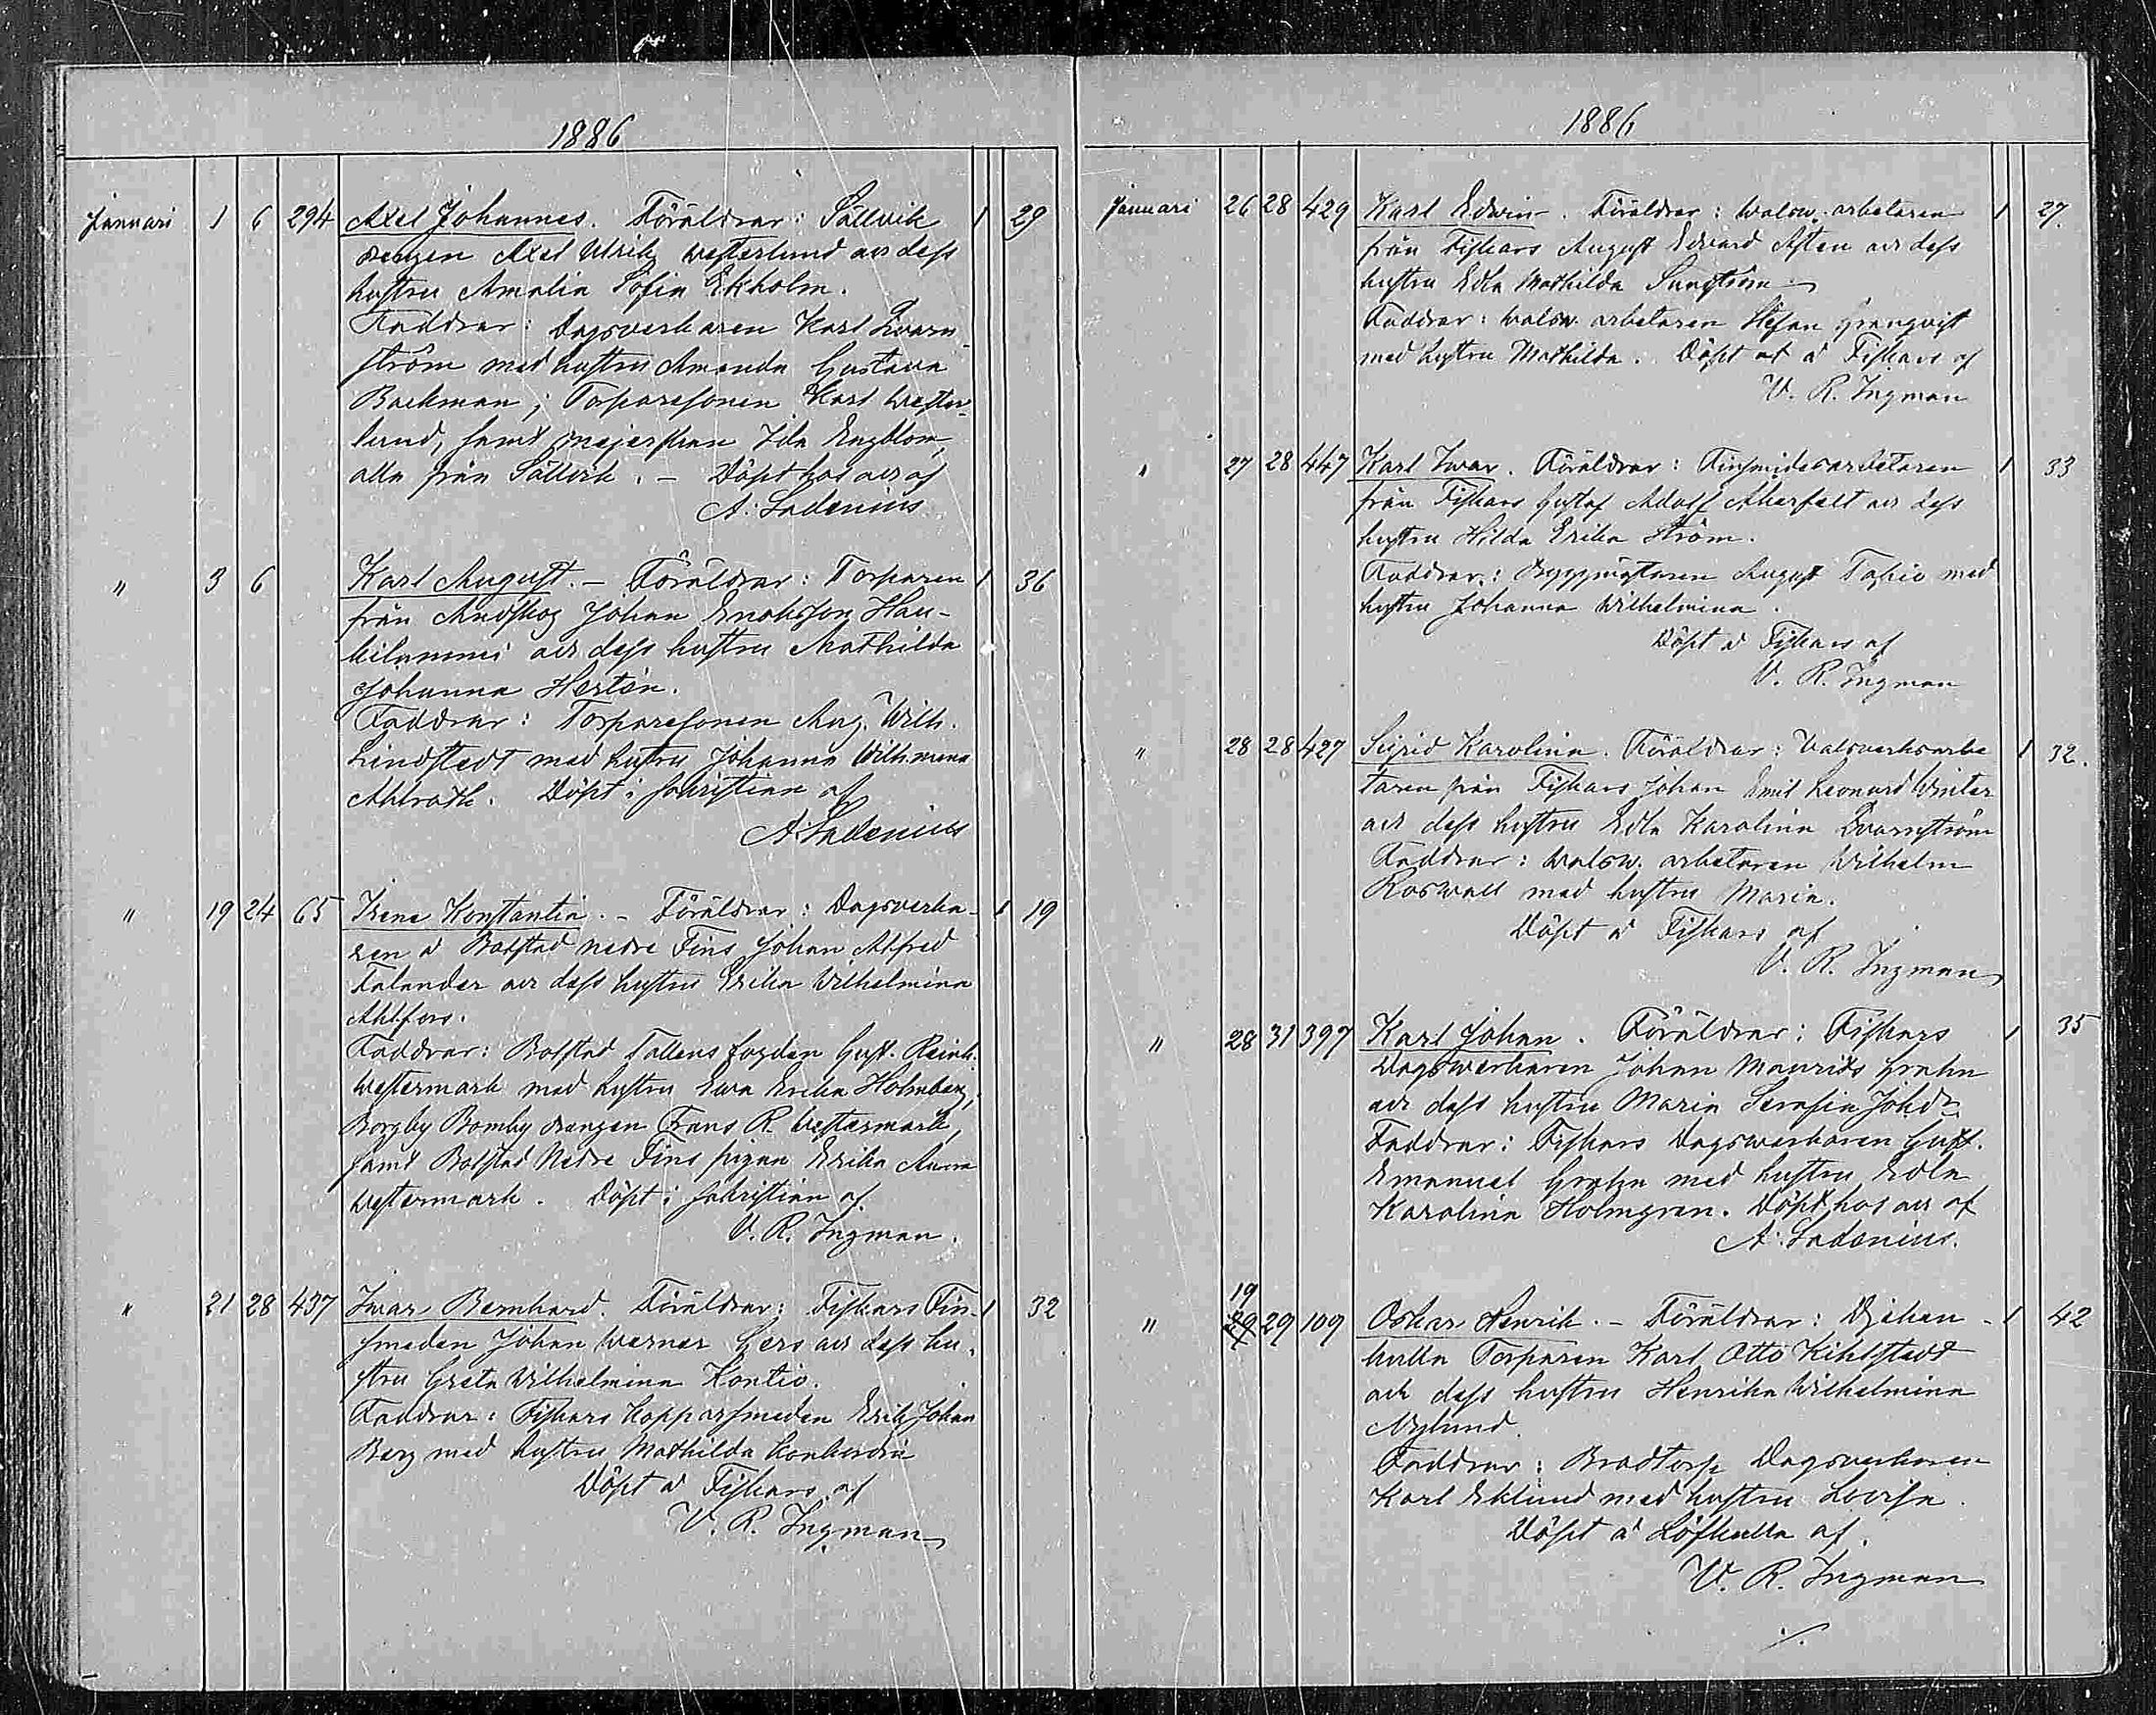 1886
Januari 1 6 294 Axel Johannes. Föräldrar: Sällvik 1 29
drengen Axel Ulrik Westerlund och dess
hustru Amalia Sofia Ekholm.
Faddrar: Dagsverkaren Karl Qvarn-
ström med hustru Amanda Gustava
Backman; Torparesonen Karl Wester-
lund, samt mejerskan Ida Engblom,
alla från Sällvik. – Döpt hos oss af
A. Ladenius.
" 3 6 Karl August. – Föräldrar: Torparen 1 36
från Andskog Johan Enoksson Hau-
kilammi och dess hustru Mathilda
Johanna Hertén.
Faddrar: Torparesonen Aug. Wilh.
Lindstedt med hustru Johanna Wilh.mina
Ahlroth. Döpt i sakristian af
A. Ladenius
" 19 24 65 Irene Konstantia. – Föräldrar: Dagsverka- 1 19
ren å Bolstad nedre Fins Johan Alfred
Falander och dess hustru Erika Wilhelmina
Ahlfors.
Faddrar: Bolstad Tallens fogden Gust. Reinh.
Westermark med hustru Ewa Erika Holmberg,
Borgby Bomby drengen Frans R. Westermark,
samt Bolstad Nedre Fins pigan Erika Anna
Westermark. Döpt i sakristian af
V. R. Ingman.
" 21 28 437 Iwar Bernhard. Föräldrar: Fiskars Fin- 1 32
smeden Johan Werner Gers och dess hu-
stru Greta Wilhelmina Kontio.
Faddrar: Fiskars Kopparsmeden Erik Johan
Berg med hustru Mathilda Konkordia
Döpt å Fiskars af
V. R. Ingman
1886
Januari 26 28 429 Karl Edwin. Föräldrar: Walsw. arbetaren 1 27.
från Fiskars August Edvard Asten och dess
hustru Edla Mathilda Sundström
Faddrar: Walsw. arbetaren Stefan Granqvist
med hustru Mathilda. Döpt å Fiskars af
V. R. Ingman
" 27 28 447 Karl Iwar. Föräldrar: Finsmidesarbetaren 1 33
från Fiskars Gustaf Adolf Åkerfelt och dess
hustru Hilda Erika Ström.
Faddrar: Byggmästaren August Tapio med
hustru Johanna Wilhelmina.
Döpt å Fiskars af
V. R. Ingman
" 28 28 427 Sigrid Karolina. Föräldrar: Valsverksarbe 1 32.
taren från Fiskars Johan Emil Leonard Winter
och dess hustru Edla Karolina Qvarnström
Faddrar: Walsw. arbetaren Wilhelm
Roswall med hustru Maria.
Döpt å Fiskars af
V. R. Ingman
" 28 31 397 Karl Johan. Föräldrar: Fiskars 1 35
Dagswerkaren Johan Maurits Grahn
och dess hustru Maria Serafia Johdr
Faddrar: Fiskars Dagswerkaren Gust.
Emanuel Grahn med hustru Edla
Karolina Holmgren. Döpt hos oss af
A. Ladenius.
19
" 29 29 109 Oskar Henrik. – Föräldrar: Djeken- 1 42
kulla Torparen Karl Otto Kihlstedt
och dess hustru Henrika Wilhelmina
Nylund.
Faddrar: Bradtorp Dagsverkaren
Karl Eklund med hustru Lovisa.
Döpt å Löfkulla af.
V. R. Ingman